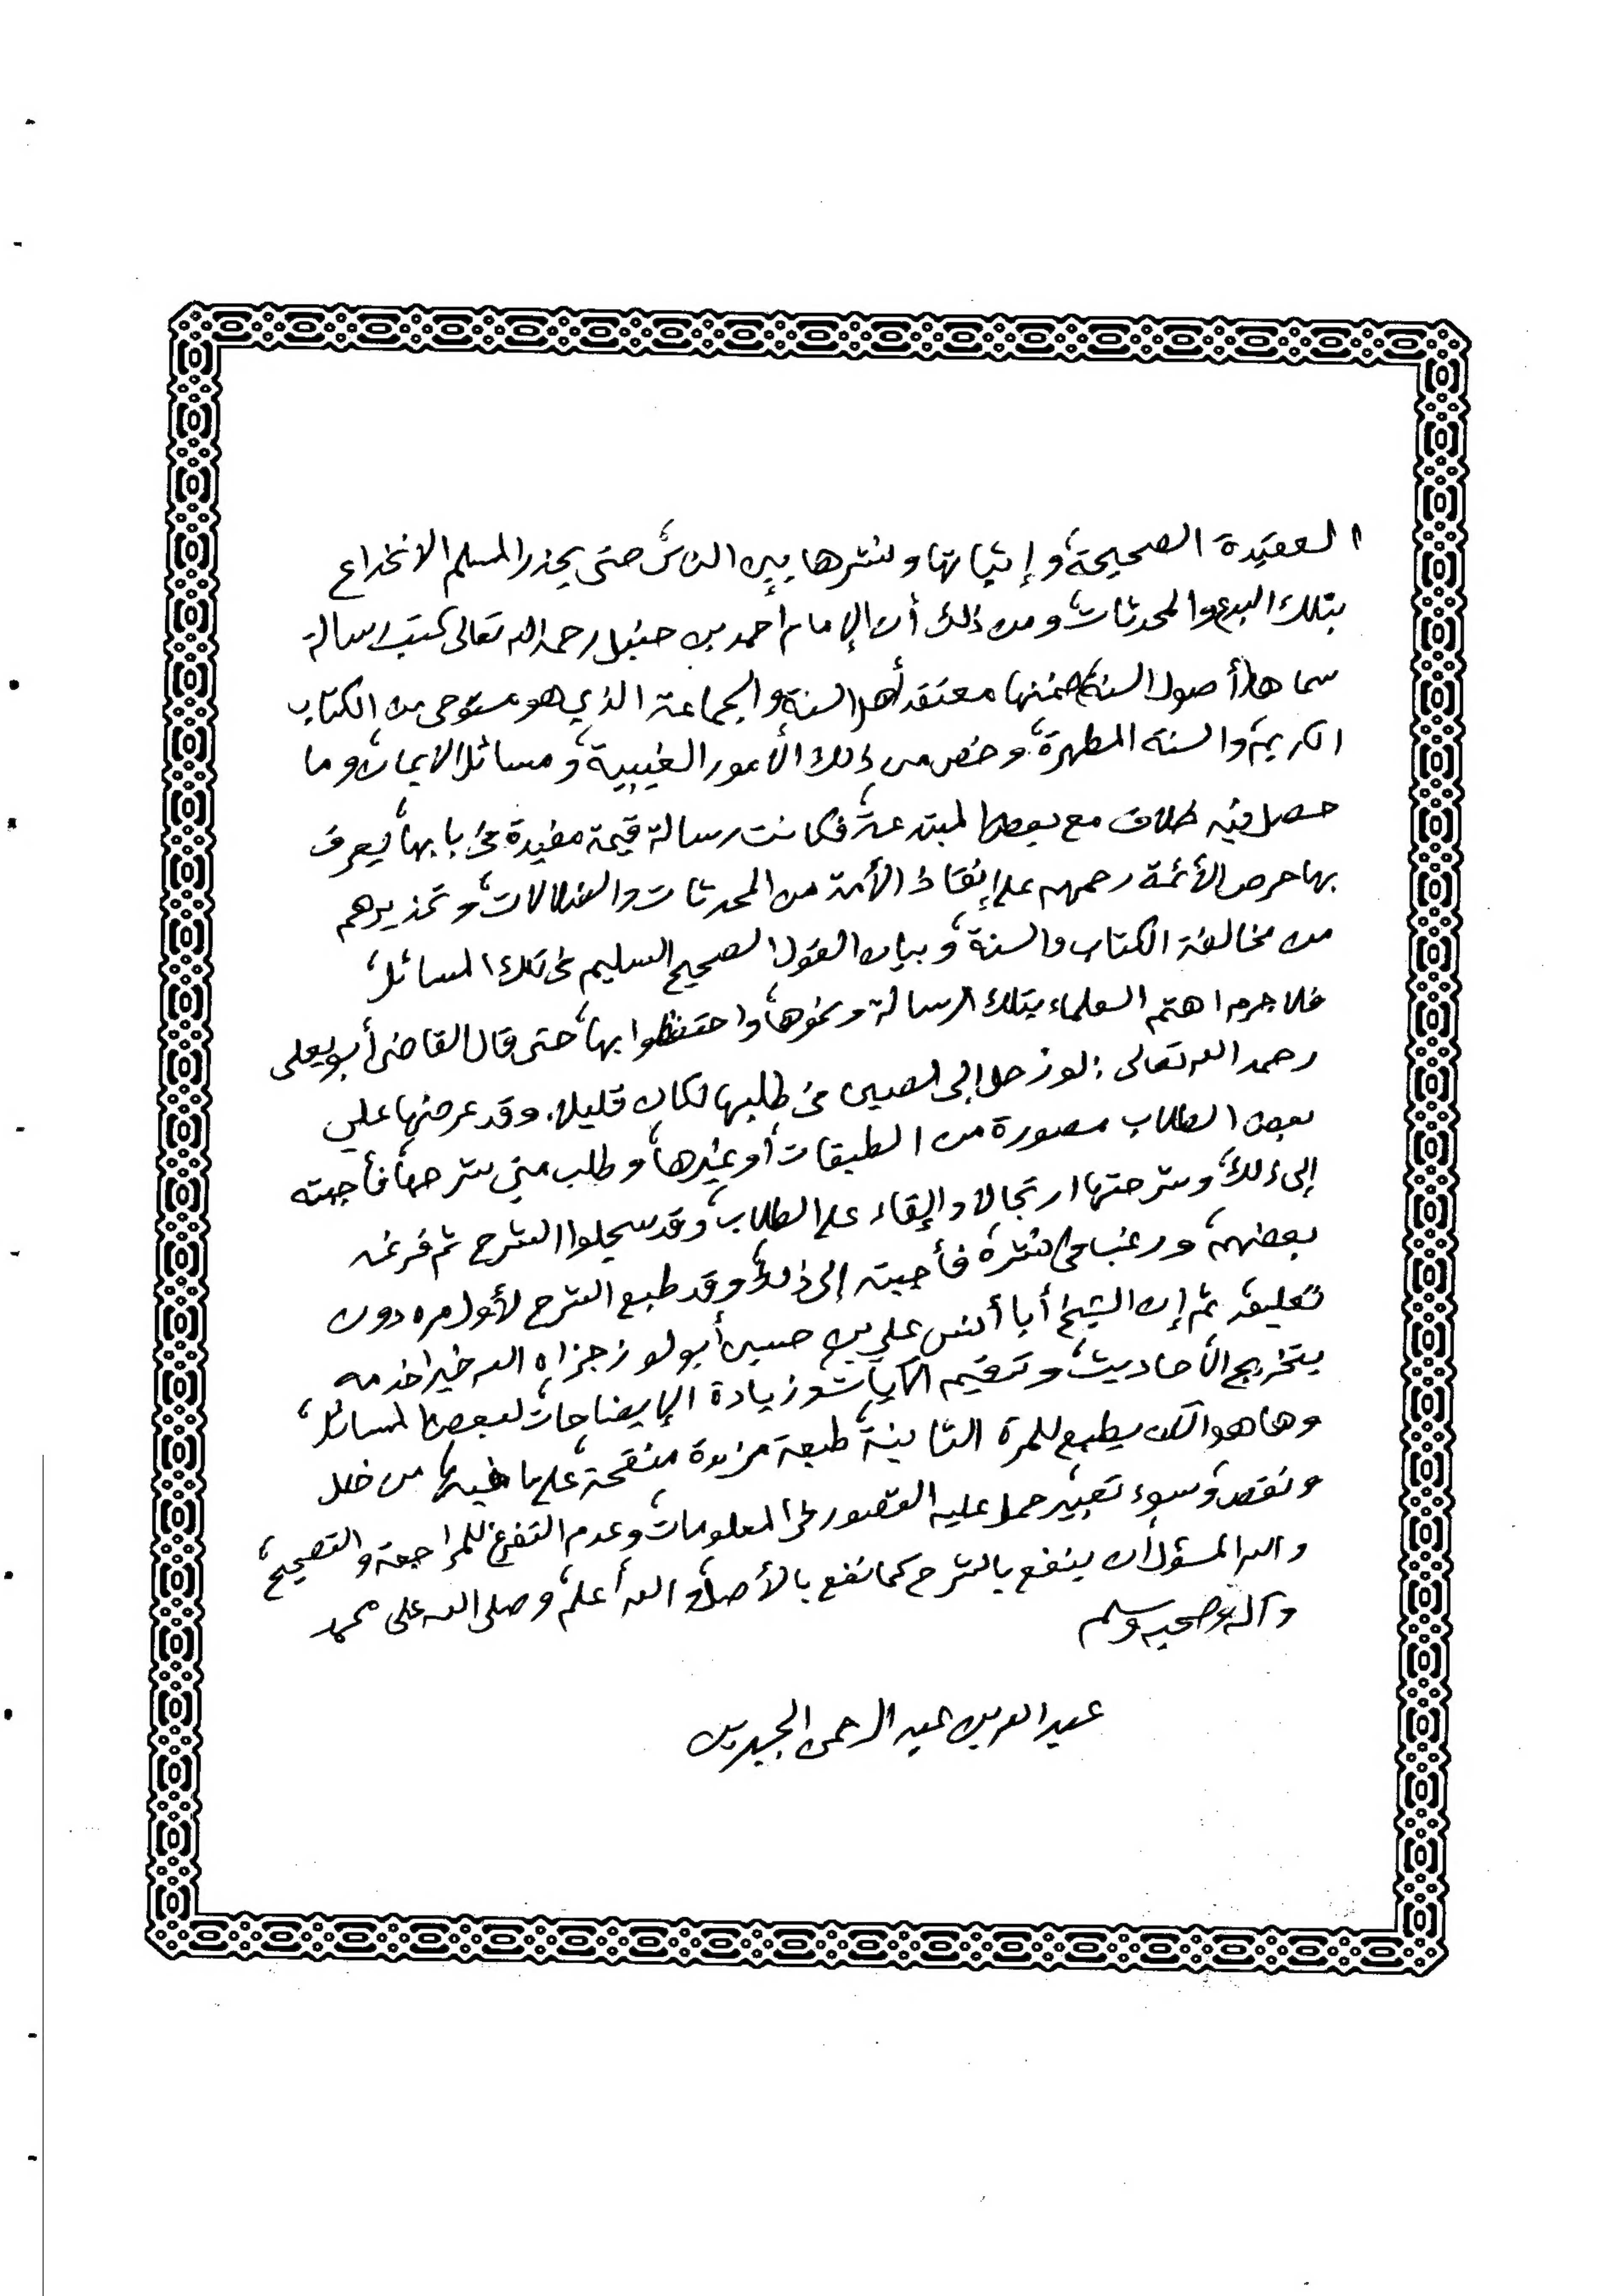 العقيدة الصحيحة، وإثباتها ونشرها بين الناس، حتى يحذر المسلم الانخداع
بتلك البدع والمحدثات، ومن ذلك أن الإمام أحمد بن حنبل رحمه الله تعالى كتب رسالة
سماها (أصول السنة) ضمنها معتقد أهل السنة والجماعة الذي هو مستوحى من الكتاب
الكريم، والسنة المطهرة، وخص من ذلك الأمور الغيبية، ومسائل الايمان، وما
حصل فيه خلاف مع بعض المبتدعة، فكانت رسالة قيمة مفيدة في بابها، يعرف
بها حرص الأئمة رحمهم على إنقاذ الأمة من المحدثات والضلالات، وتحذيرهم
من مخالفة الكتاب والسنة، وبيان القول الصحيح السليم في تلك المسائل،
فلا جرم اهتم العلماء بتلك الرسالة ونحوها، واحتفظوا بها، حتى قال القاضي أبو يعلى
رحمه الله تعالى: لو رحل إلى الصين في طلبها لكان قليلا. وقد عرضها علي
بعض الطلاب مصورة من الطبقات أو غيرها، وطلب مني شرحها، فأجبته
إلى ذلك، وشرحتها ارتجالا وإلقاء على الطلاب، وقد سجلوا الشرح ثم فرغه
بعضهم، ورغب في نشره فأجبته إلى ذلك، وقد طبع الشرح لأول مره دون
تعليق، ثم إن الشيخ أبا أنس علي بن حسين أبو لوز جزاه الله خيرا خدمه
بتخريج الأحاديث، وترقيم الآيات، وزيادة الإيضاحات لبعض المسائل،
وها هو الآن يطبع للمرة الثانية، طبعة مزيدة منقحة، على ما فيها من خلل
ونقص، وسوء تعبير، حمل عليه القصور في المعلومات، وعدم التفرغ للمراجعة والتصحيح،
والله المسؤل أن ينفع بالشرح كما نفع بالأصل، والله أعلم، وصلى الله على محمد
وآله وصحبه وسلم
عبد الله بن عبد الرحمن الجبرين